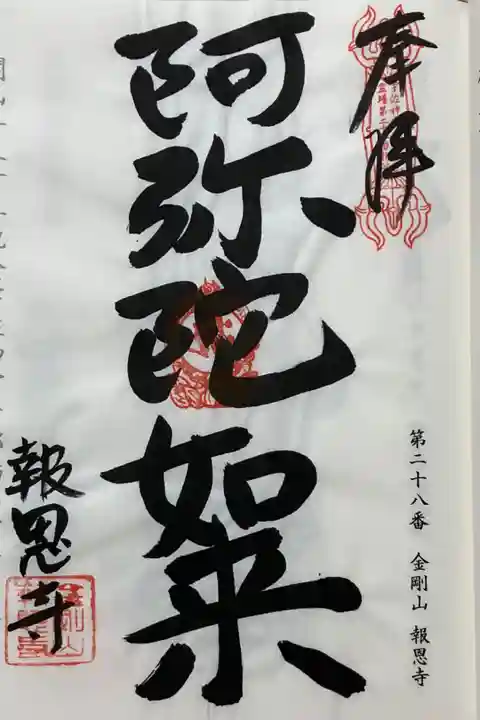 奉拝
阿弥陀如来
報恩寺
第二十八番 金剛山 報恩寺